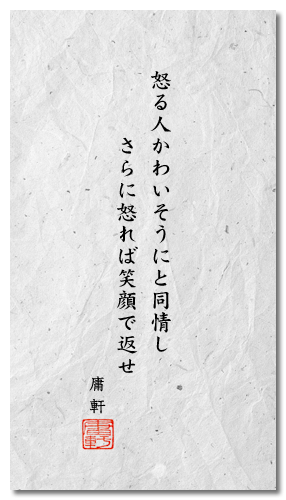 怒る人かわいそうにと同情し
さらに怒れば笑顔で返せ
庸軒
庸軒